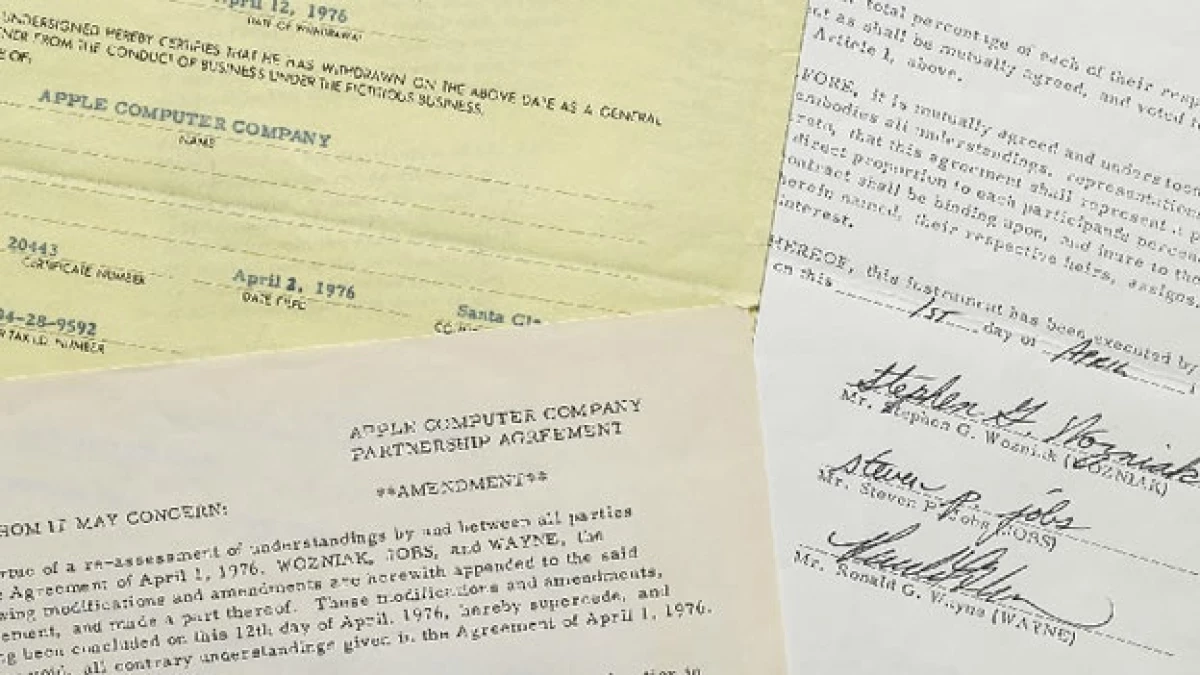 April 12, 1976
DATE OF WITHDRAWAL
UNDERSIGNED HEREBY CERTIFIES THAT HE HAS WITHDRAWN ON THE ABOVE DATE AS A GENERAL
FROM THE CONDUCT OF BUSINESS UNDER THE FICTITIOUS BUSINESS
OF:
APPLE COMPUTER COMPANY
NAME
20443
CERTIFICATE NUMBER
April 2, 1976
DATE FILED
Santa
4-28-9592
TAX I.D. NUMBER
APPLE COMPUTER COMPANY
PARTNERSHIP AGREEMENT
**AMENDMENT**
WHOM IT MAY CONCERN:
of a re-assessment of understandings by and between all parties
Agreement of April 1, 1976. WOZNIAK, JOBS, and WAYNE, the
modifications and amendments are herewith appended to the said
and made a part thereof. These modifications and amendments,
been concluded on this 12th day of April, 1976, hereby supercede, and
all contrary understandings given in the Agreement of April 1, 1976.
total percentage of each of their
as shall be mutually agreed, and voted
Article 1, above.
FORE, it is mutually agreed and understood
embodies all understandings,
that this agreement shall represent
direct proportion to each participants
shall be binding upon, and inure to the
herein named, their respective heirs, assigns,
interest.
HEREOF, this instrument has been executed by
on this 1ST day of APRIL
Stephen G Wozniak
Mr. Stephen G. Wozniak (WOZNIAK)
steven P. jobs
Mr. Steven P. Jobs (JOBS)
Mr. Ronald G. Wayne (WAYNE)